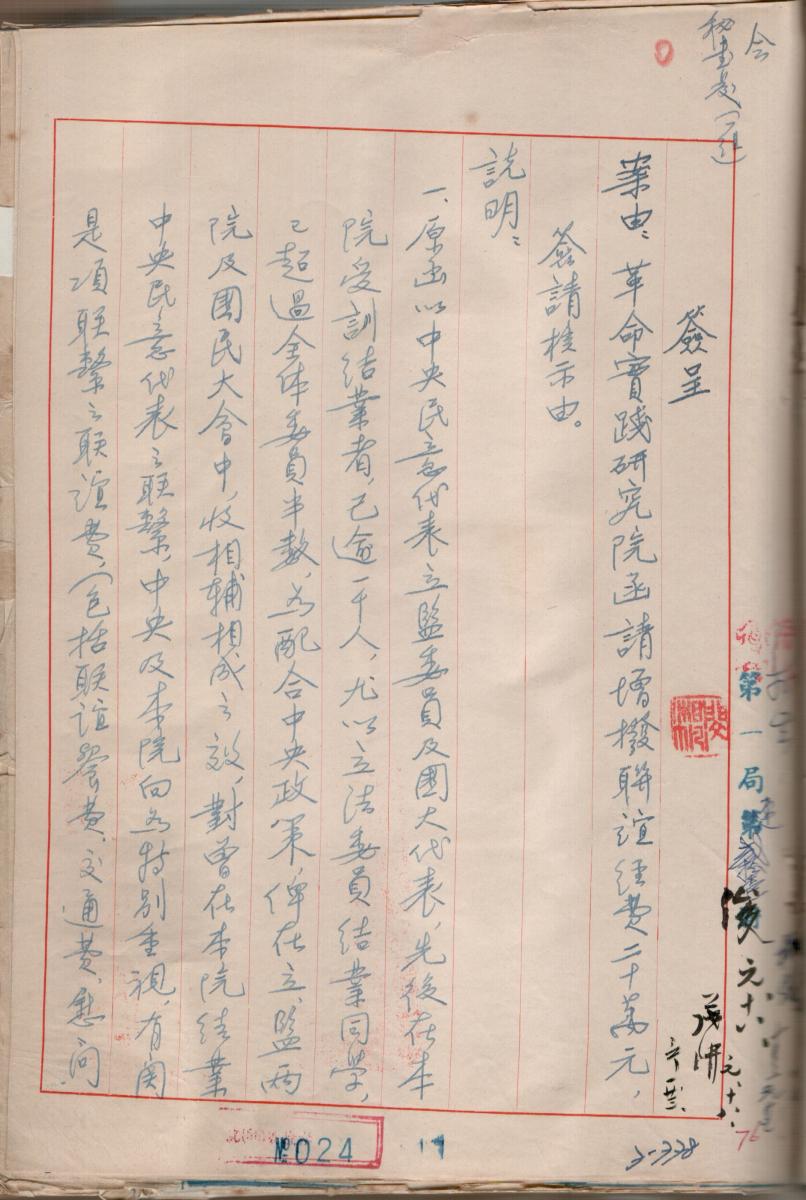 会
簽呈
案由：革命實踐研究院函請增撥聯誼經費二十萬元，
簽請核示由。
説明：
一、原函以中央民意代表立監委員及國大代表，先後在本
院受訓結業者，已逾一千人，尤以立法委員結業同學，
已超過全体委員半數，為配合中央政策，俾在立、監兩
院及國民大會中，收相輔相成之效，對曾在本院結業
中央民意代表之联繫，中央及本院向為特別重視，有関
是項联繫之联誼費，（包括联誼餐費、交通費、慰問
第一局
元、十八、
№024
17
3-338
76